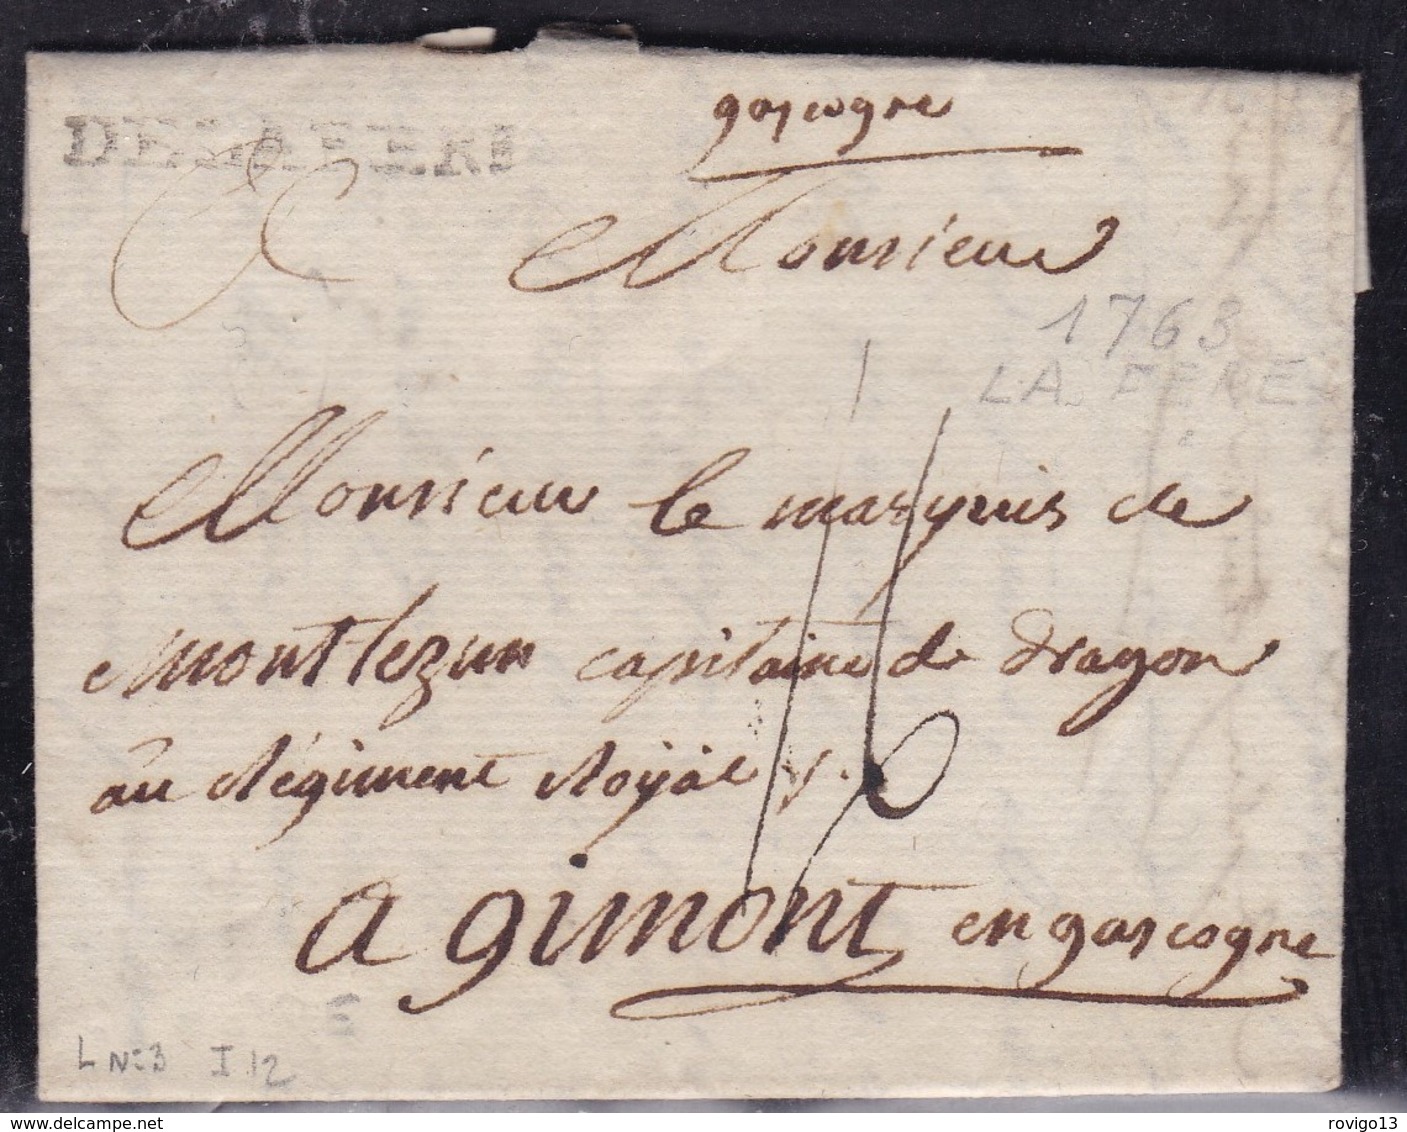 DELAFERE
gascogne
Monsieur
1763
LA FERE
Monsieur le marquis de
montlezun capitaine de dragon
au Régiment Royal
a gimont en gascogne
L N:3 I 12
delcampe.net
rovigo13